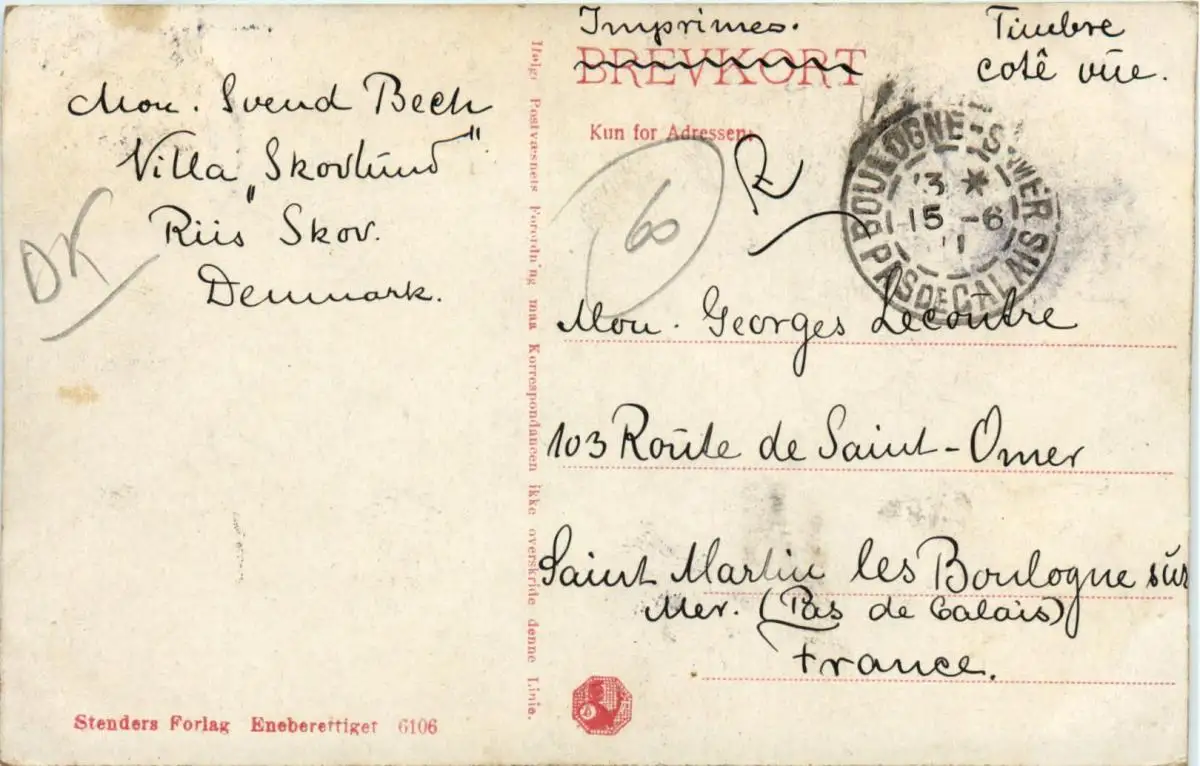 Mon. Svend Bech
Villa „Skovlund"
Riis Skov.
Denmark.
DK
Stenders Forlag Eneberettiget 6106
Ifølge Postvæsnets Forordning maa Korrespondancen ikke overskride denne Linie.
Imprimés.
BREVKORT
Kun for Adressen.
Timbre
coté vue.
60
R
BOULOGNE-S-MER
PAS DE CALAIS
13 *
15 -6
11
Mon. Georges Lecoutre
103 Route de Saint-Omer
Saint Martin les Boulogne sur
Mer. (Pas de Calais)
France.